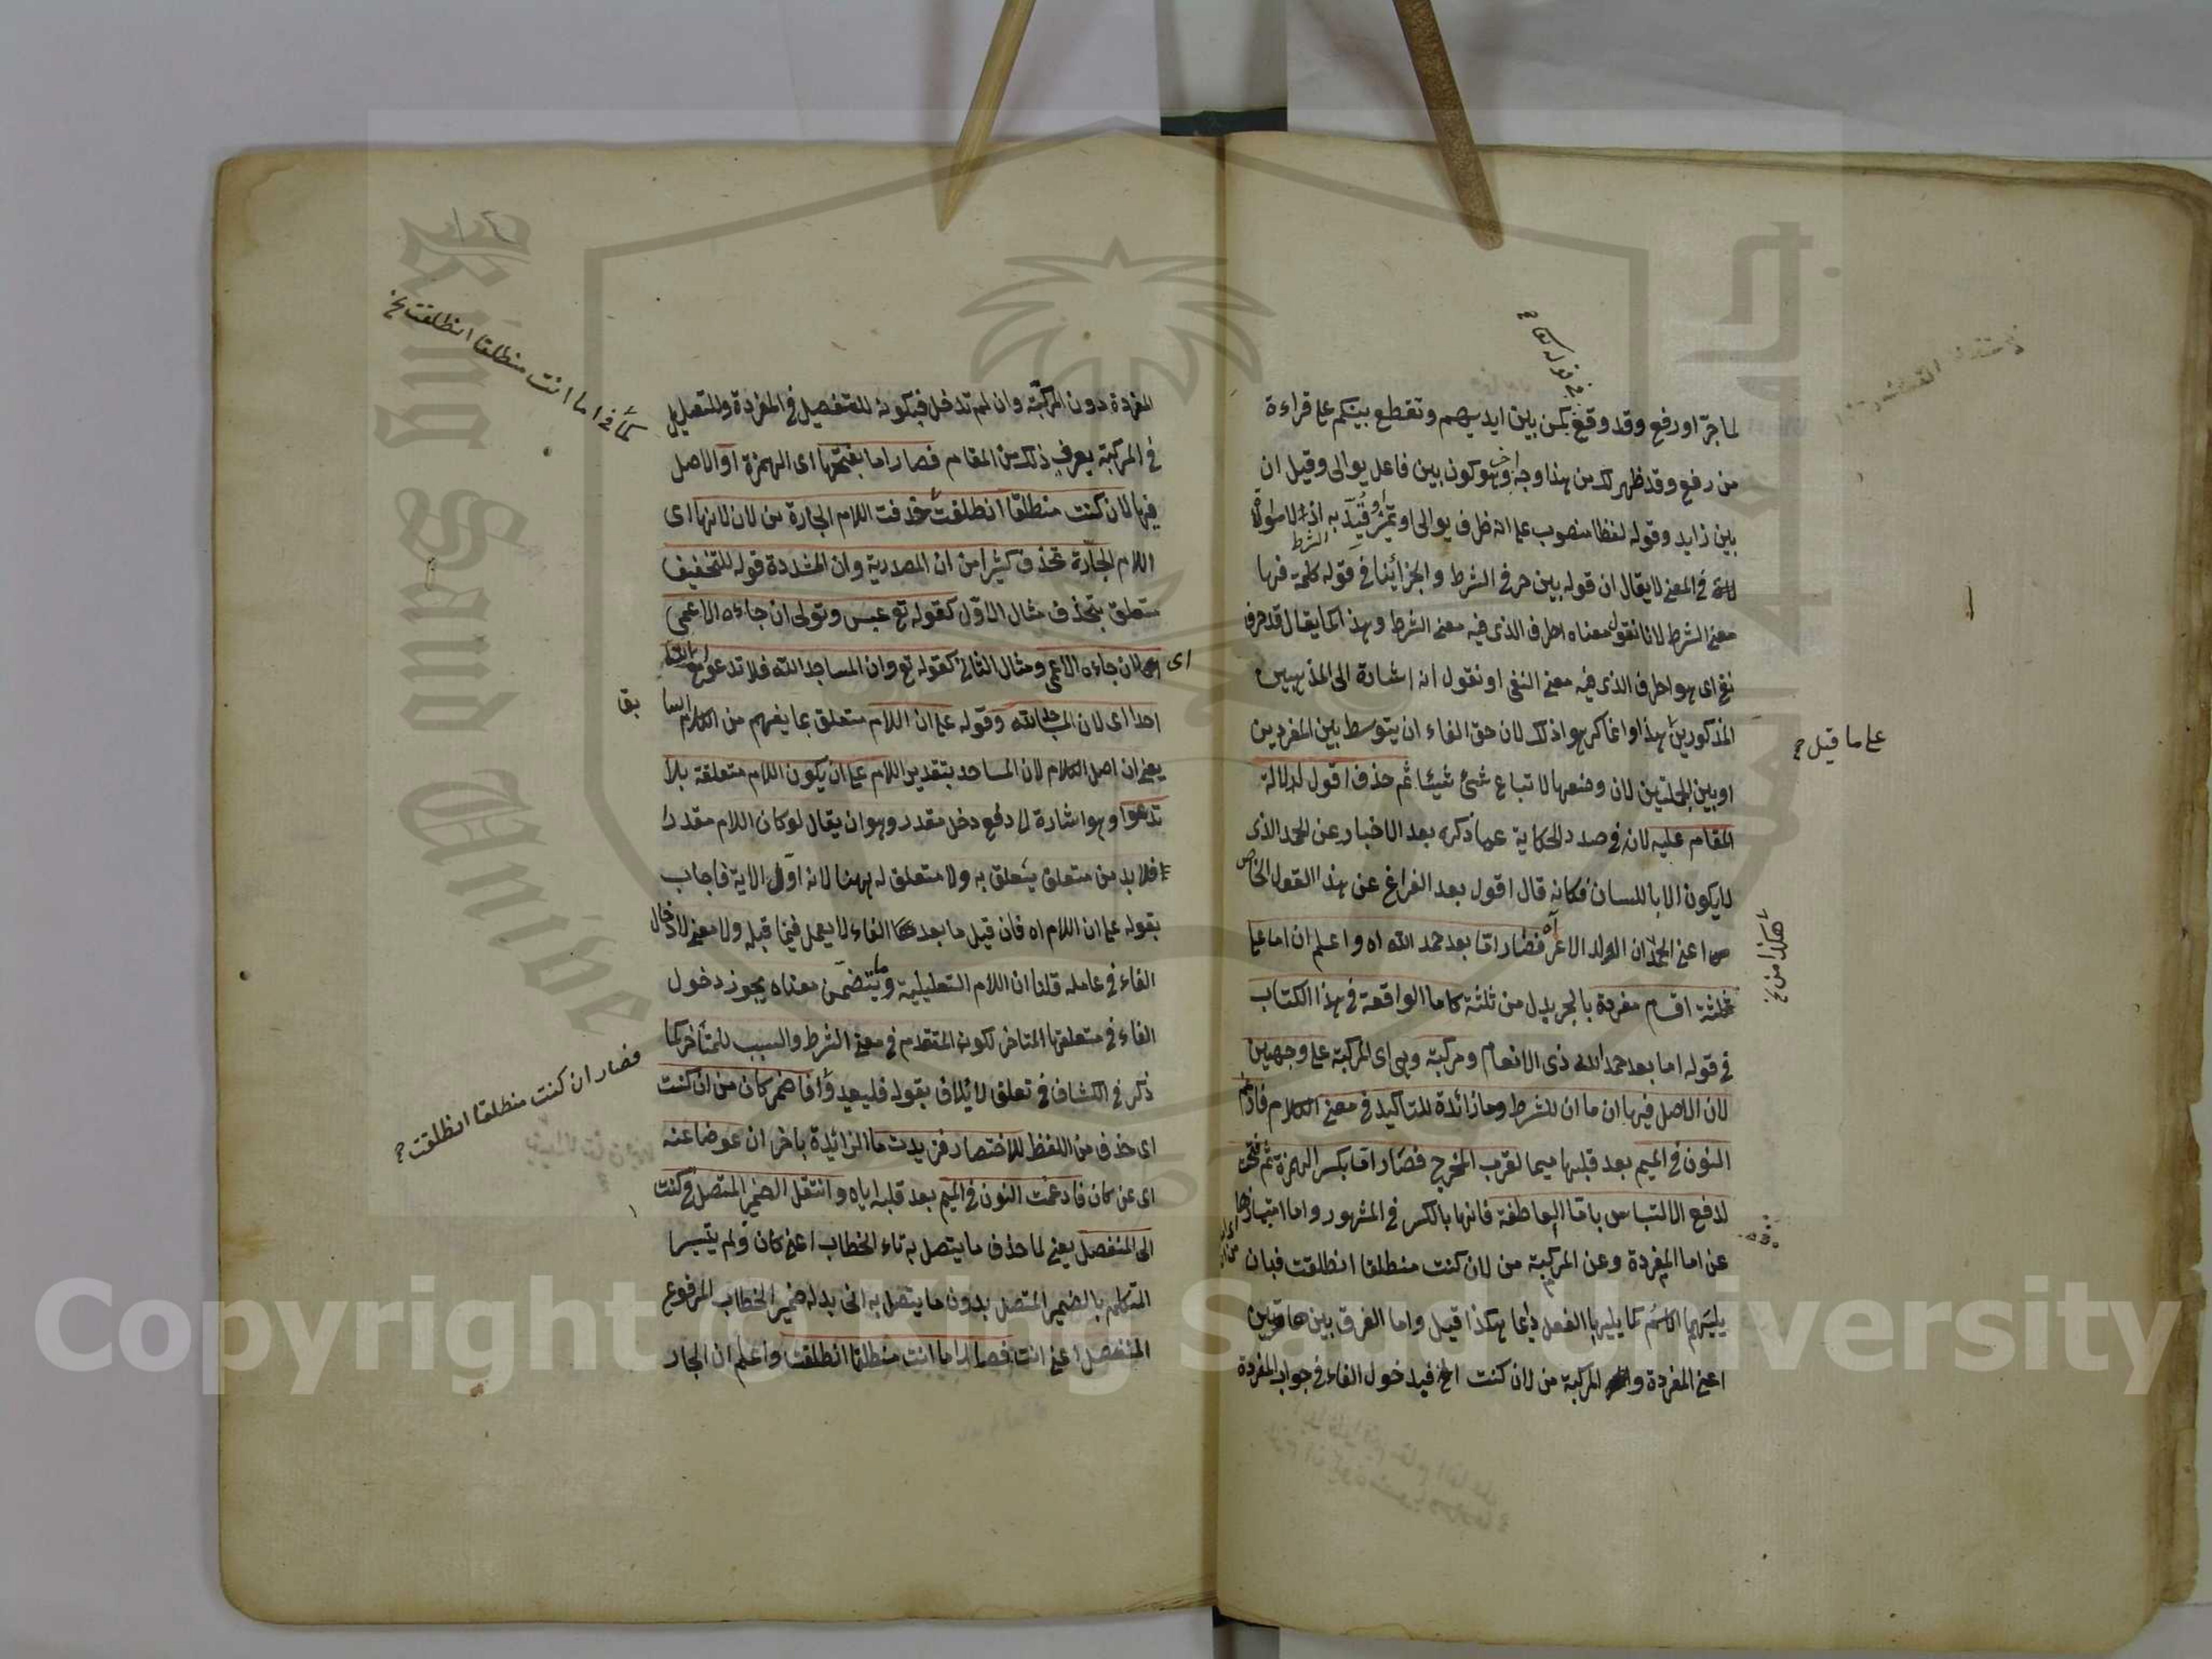 لما جرّ او رفع وقد وقع يمكن بين ايديهم وتقطع بينكم على قراءة
من رفع وقد ظهر لك من هذا وجه وهو كون بين فاعل يوالى وقيل ان
بين زايد وقوله لفظا منصوب على انه ظرف يوالى او تميز وقيد به
فى المعنى لا يقال ان قوله بين حرفى الشرط والجزأ ينافى قوله كلمة فيها
معنى الشرط لانا نقول معناه احرف الذى فيه معنى الشرط وهذا كما يقال قد حرف
نفى اى هو احرف الذى فيه معنى النفى او نقول انه اشارة الى المذهبين
المذكورين هذا وانما كرهوا ذلك لان حق الفاء ان يتوسط بين المفردين
او بين الجملتين لان وضعها لاتباع شئ شيئا ثم حذف اقول لدلالة
المقام عليه لانه فى صدد الحكاية عما ذكره بعد الاخبار عن الحمد الذى
لا يكون الا باللسان فكانه قال اقول بعد الفراغ عن هذا القول الخاص
اعنى الحمد ان الولد الاعز فصار اما بعد حمد الله اه واعلم ان اما على
ثلثة اقسام مفردة بالجر بدل من ثلثة كاما الواقعة فى هذا الكتاب
فى قوله اما بعد حمد الله ذى الانعام ومركبة وهى اى المركبة على وجهين
لان الاصل فيها ان ما ان للشرط وما زائدة للتاكيد فى معنى الكلام فادغم
النون فى الميم بعد قلبها ميما لقرب المخرج فصار اما بكسر الهمزة ثم فتحت
لدفع الالتباس باما العاطفة فانها بالكسر فى المشهور واما امتيازها
عن اما المفردة وعن المركبة من لان كنت منطلقا انطلقت فبان
يليهما الاسم كما يليها الفعل دائما هكذا قيل واما الفرق بين هاتين
اعنى المفردة والمركبة من لان كنت الخ فيدخول الفاء فى جواب المفردة
على ما قيل
هكذا من
المفردة دون المركبة وان لم تدخل فبكونه للتفصيل فى المفردة وللتعليل
فى المركبة يعرف ذلك من المقام فصار اما بفتحها اى الهمزة او الاصل
فيها لان كنت منطلقا انطلقت حذفت اللام الجارة من لان لانها اى
اللام الجارة تحذف كثيرا من ان المصدرية وان المشددة قوله للتخفيف
متعلق بتحذف مثال الاول كقوله تع عبس وتولى ان جاءه الاعمى
اى لان جاءه الاعمى ومثال الثانى كقوله تع وان المساجد لله فلا تدعوا مع الله
احدا اى لان المساجد لله وقوله على ان اللام متعلق بما يفهم من الكلام السابق
يعنى ان اصل الكلام لان المساجد بتقدير اللام على ان يكون اللام متعلقة بلا
تدعوا وهو اشارة الى دفع دخل مقدر وهو ان يقال لو كان اللام مقدرا
فلا بد من متعلق يتعلق به ولا متعلق له ههنا لانه اول الاية فاجاب
بقوله على ان اللام اه فان قيل ما بعد الفاء لا يعمل فيما قبله ولا معنى لادخال
الفاء فى عامله قلنا ان اللام التعليلية وما يتضمن معناه يجوز دخول
الفاء فى متعلقها المتاخر لكونه المتقدم فى معنى الشرط والسبب للمتأخر كما
ذكر فى الكشاف فى تعلق لايلاف بقوله فليعبدوا فاضمر كان من ان كنت
اى حذف من اللفظ للاختصار فزيدت ما الزائدة باخر ان عوضا عنه
اى عن كان فادغمت النون فى الميم بعد قلبه اياه وانتقل الضمير المتصل فى كنت
الى المنفصل يعنى لما حذف ما يتصل به تاء الخطاب اعنى كان ولم يتيسر
المتكلم بالضمير المتصل بدون ما يتصل به اتى بدله ضمير الخطاب المرفوع
المنفصل اعنى انت فصار اما انت منطلقا انطلقت واعلم ان الجار
كما فى اما انت منطلقا انطلقت
فصار ان كنت منطلقا انطلقت
Copyright © King Saud University